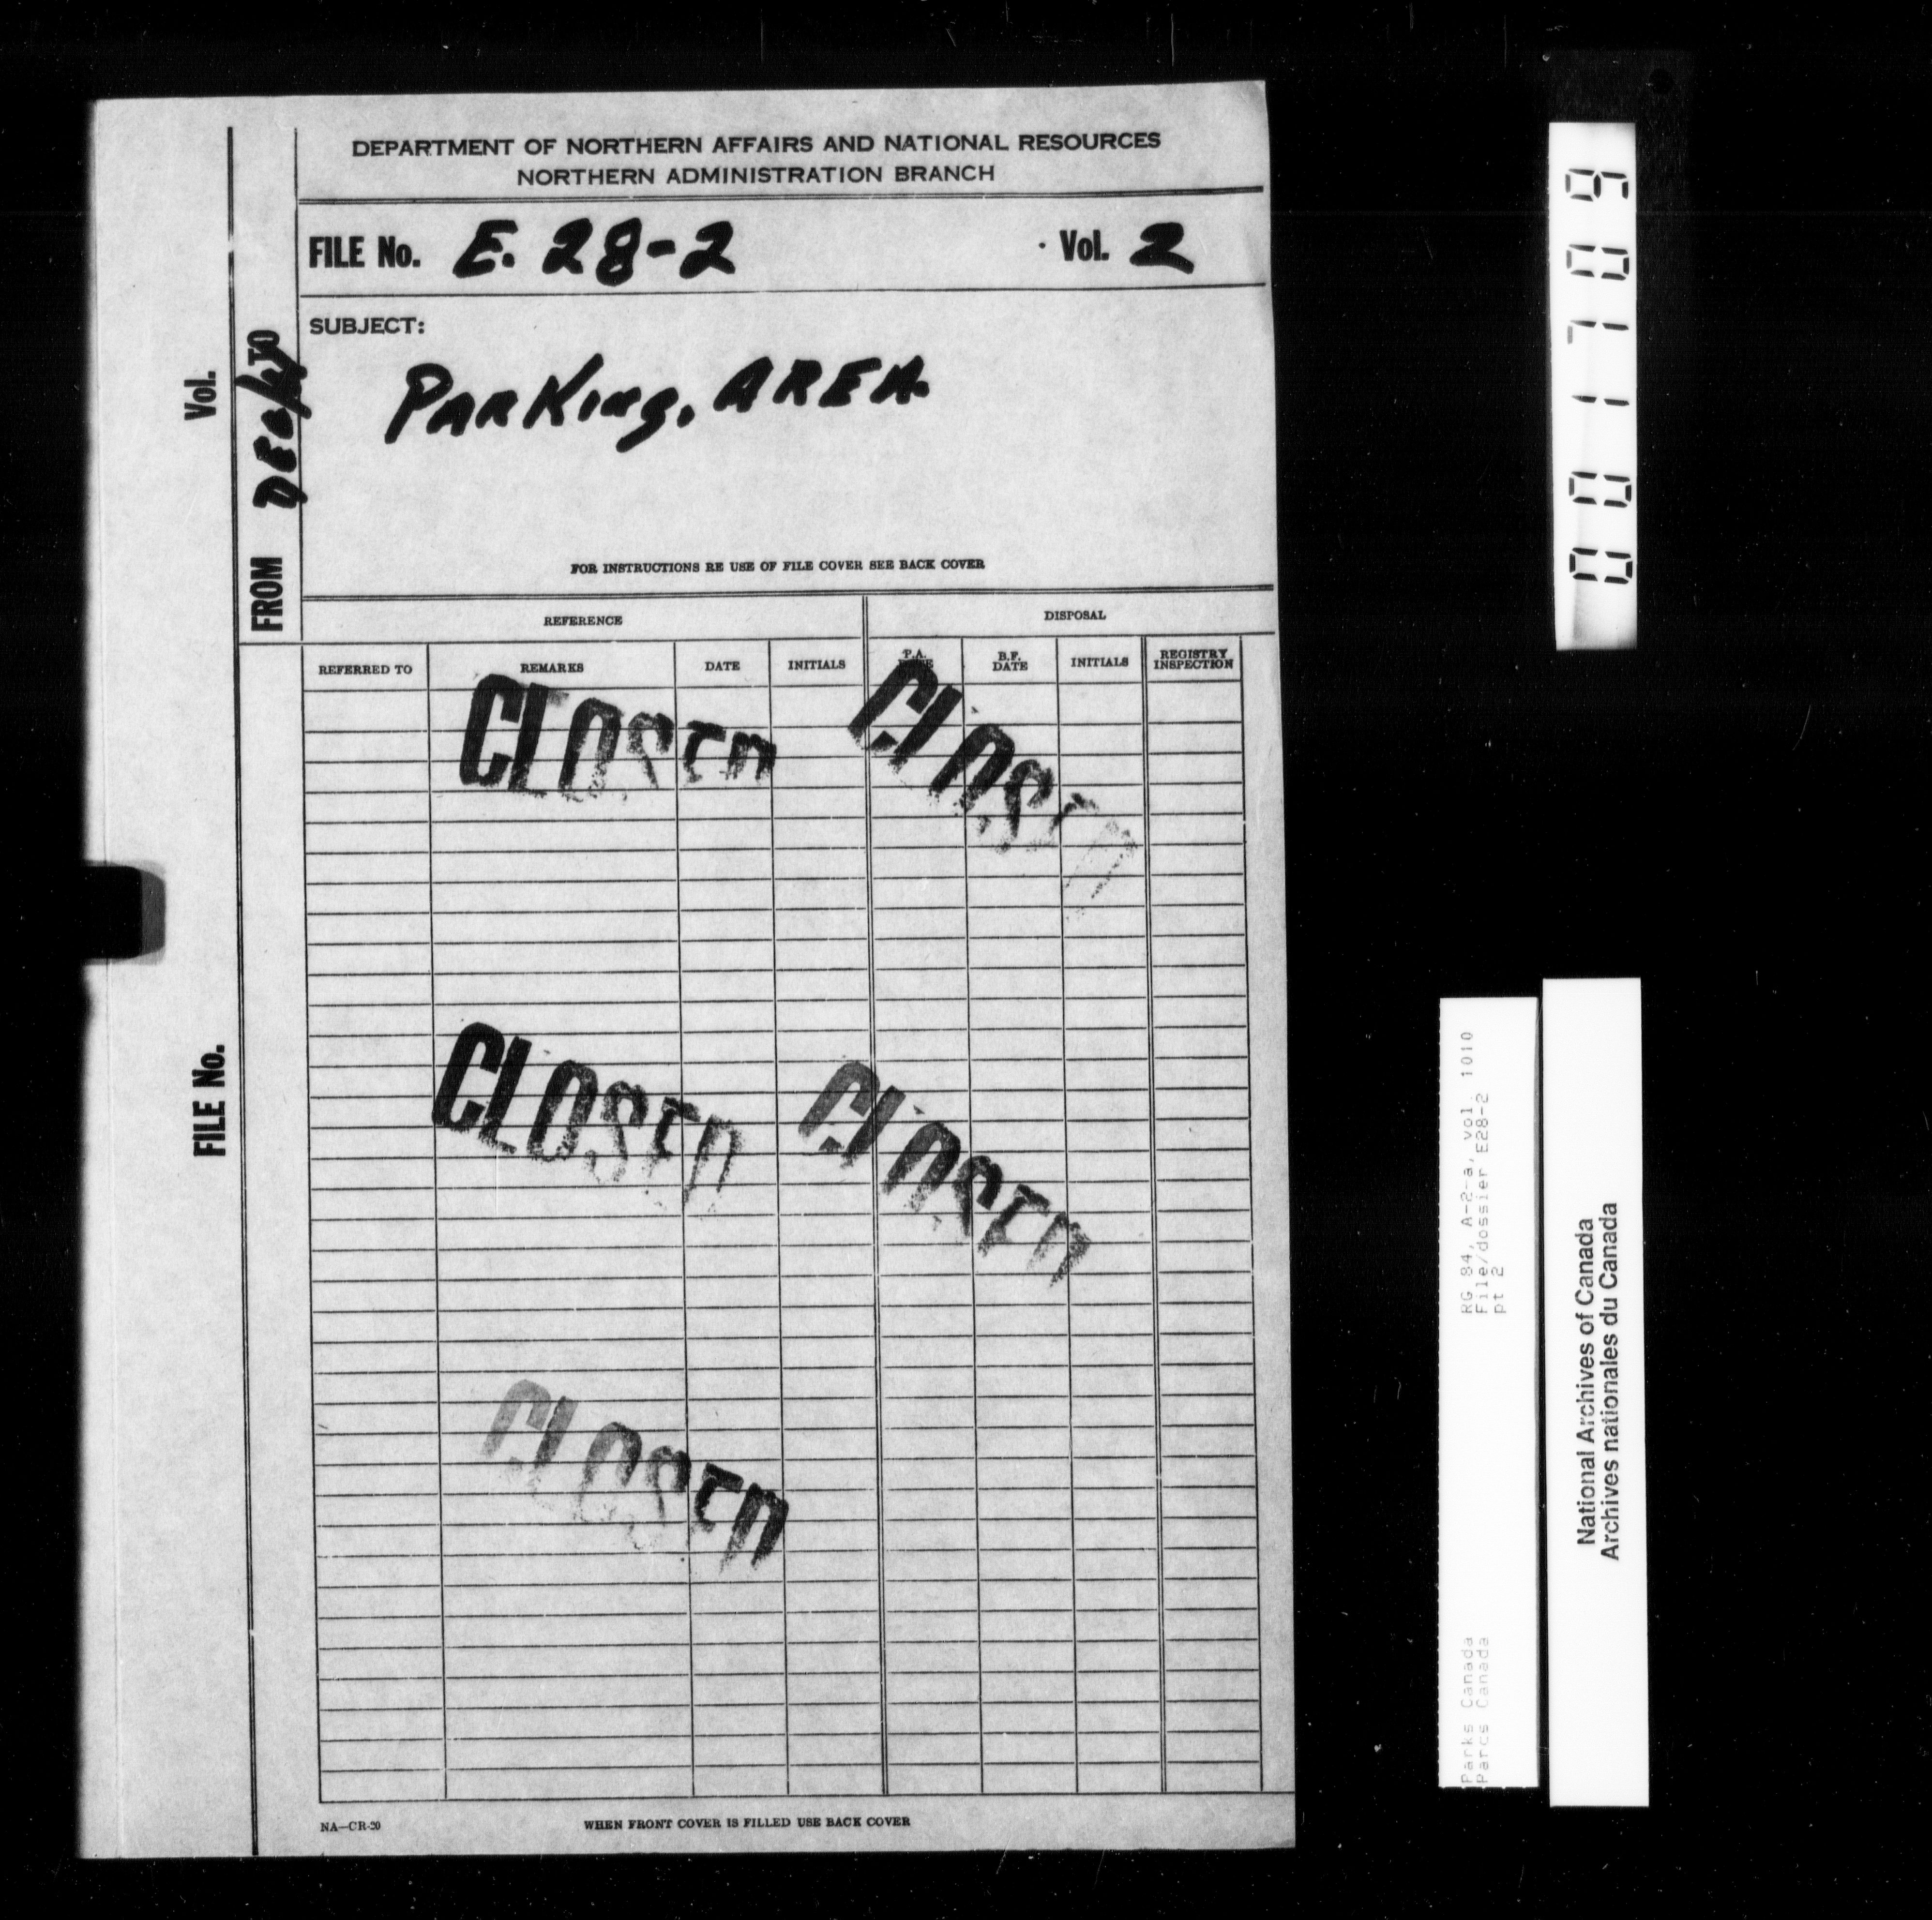 DEPARTMENT OF NORTHERN AFFAIRS AND NATIONAL RESOURCES
NORTHERN ADMINISTRATION BRANCH
FILE No. E. 28-2 Vol. 2
SUBJECT:
Parking. AREA
FOR INSTRUCTIONS RE USE OF FILE COVER SEE BACK COVER
REFERENCE DISPOSAL
REFERRED TO REMARKS DATE INITIALS P.A. DATE B.F. DATE INITIALS REGISTRY INSPECTION
CLOSED CLOSED
CLOSED CLOSED
CLOSED
NA—CR-20 WHEN FRONT COVER IS FILLED USE BACK COVER
FILE No. Vol.
FROM TO
001709
RG 84, A-2-a, vol. 1010
File/dossier E28-2
pt 2
Parks Canada
Parcs Canada
National Archives of Canada
Archives nationales du Canada